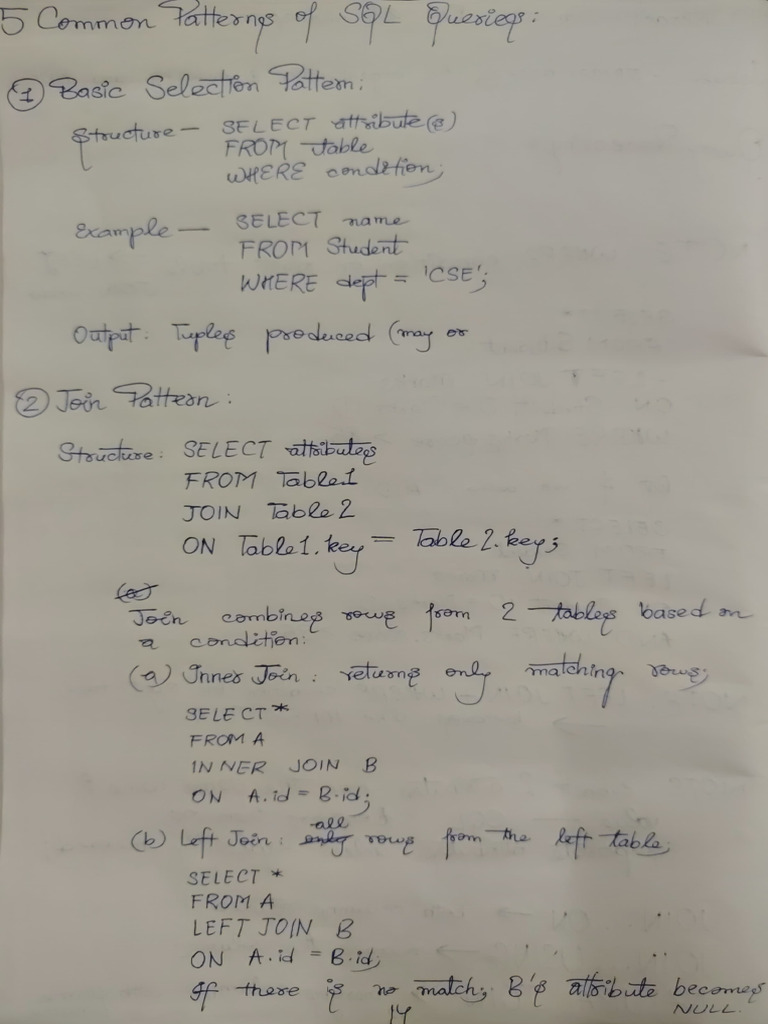 5 Common Patterns of SQL Queries:
① Basic Selection Pattern:
Structure — SELECT attribute(s)
FROM table
WHERE condition;
Example — SELECT name
FROM Student
WHERE dept = 'CSE';
Output: Tuples produced (may or
② Join Pattern:
Structure: SELECT attributes
FROM Table1
JOIN Table2
ON Table1.key = Table2.key;
Join combines rows from 2 tables based on
a condition:
(a) Inner Join: returns only matching rows;
SELECT *
FROM A
INNER JOIN B
ON A.id = B.id;
(b) Left Join: all rows from the left table;
SELECT *
FROM A
LEFT JOIN B
ON A.id = B.id;
If there is no match; B's attribute becomes
NULL.
14